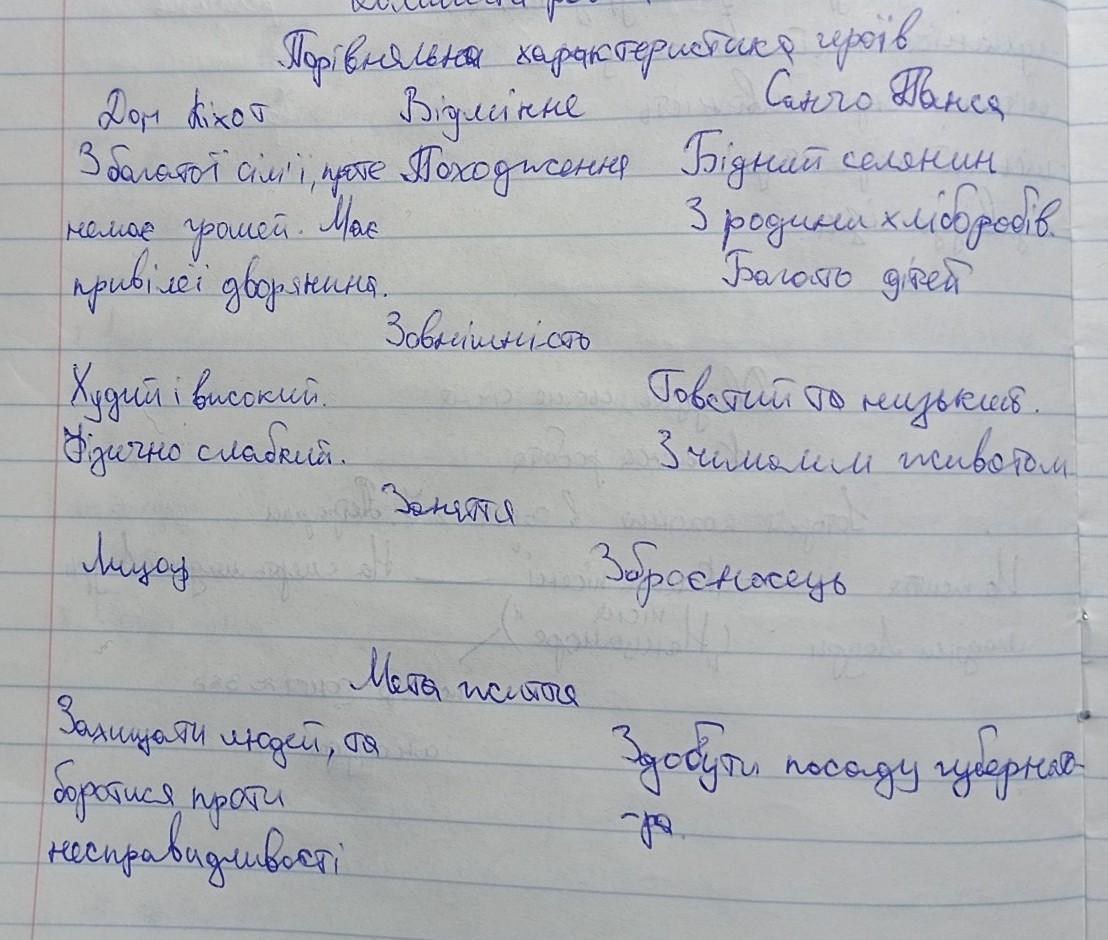 Порівняльна характеристика героїв
Дон Кіхот Відмінне Санчо Панса
З багатої сім'ї, проте Походження Бідний селянин
немає грошей. Має З родини хліборобів.
привілеї дворянина. Багато дітей
Зовнішність
Худий і високий. Товстий та низький.
Фізично слабкий. З чималим животом
Заняття
Лицар Зброєносець
Мета життя
Захищати людей, та Здобути посаду губернато-
боротися проти -ра.
несправидливості